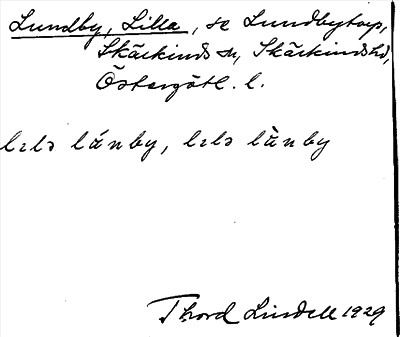 Lundby, Lilla, se Lundbytorp,
Skärkinds sn, Skärkinds hd,
Östergötl. l.
lɩlɔ lánby, lɩlɔ lànby
Thord Lindell 1929